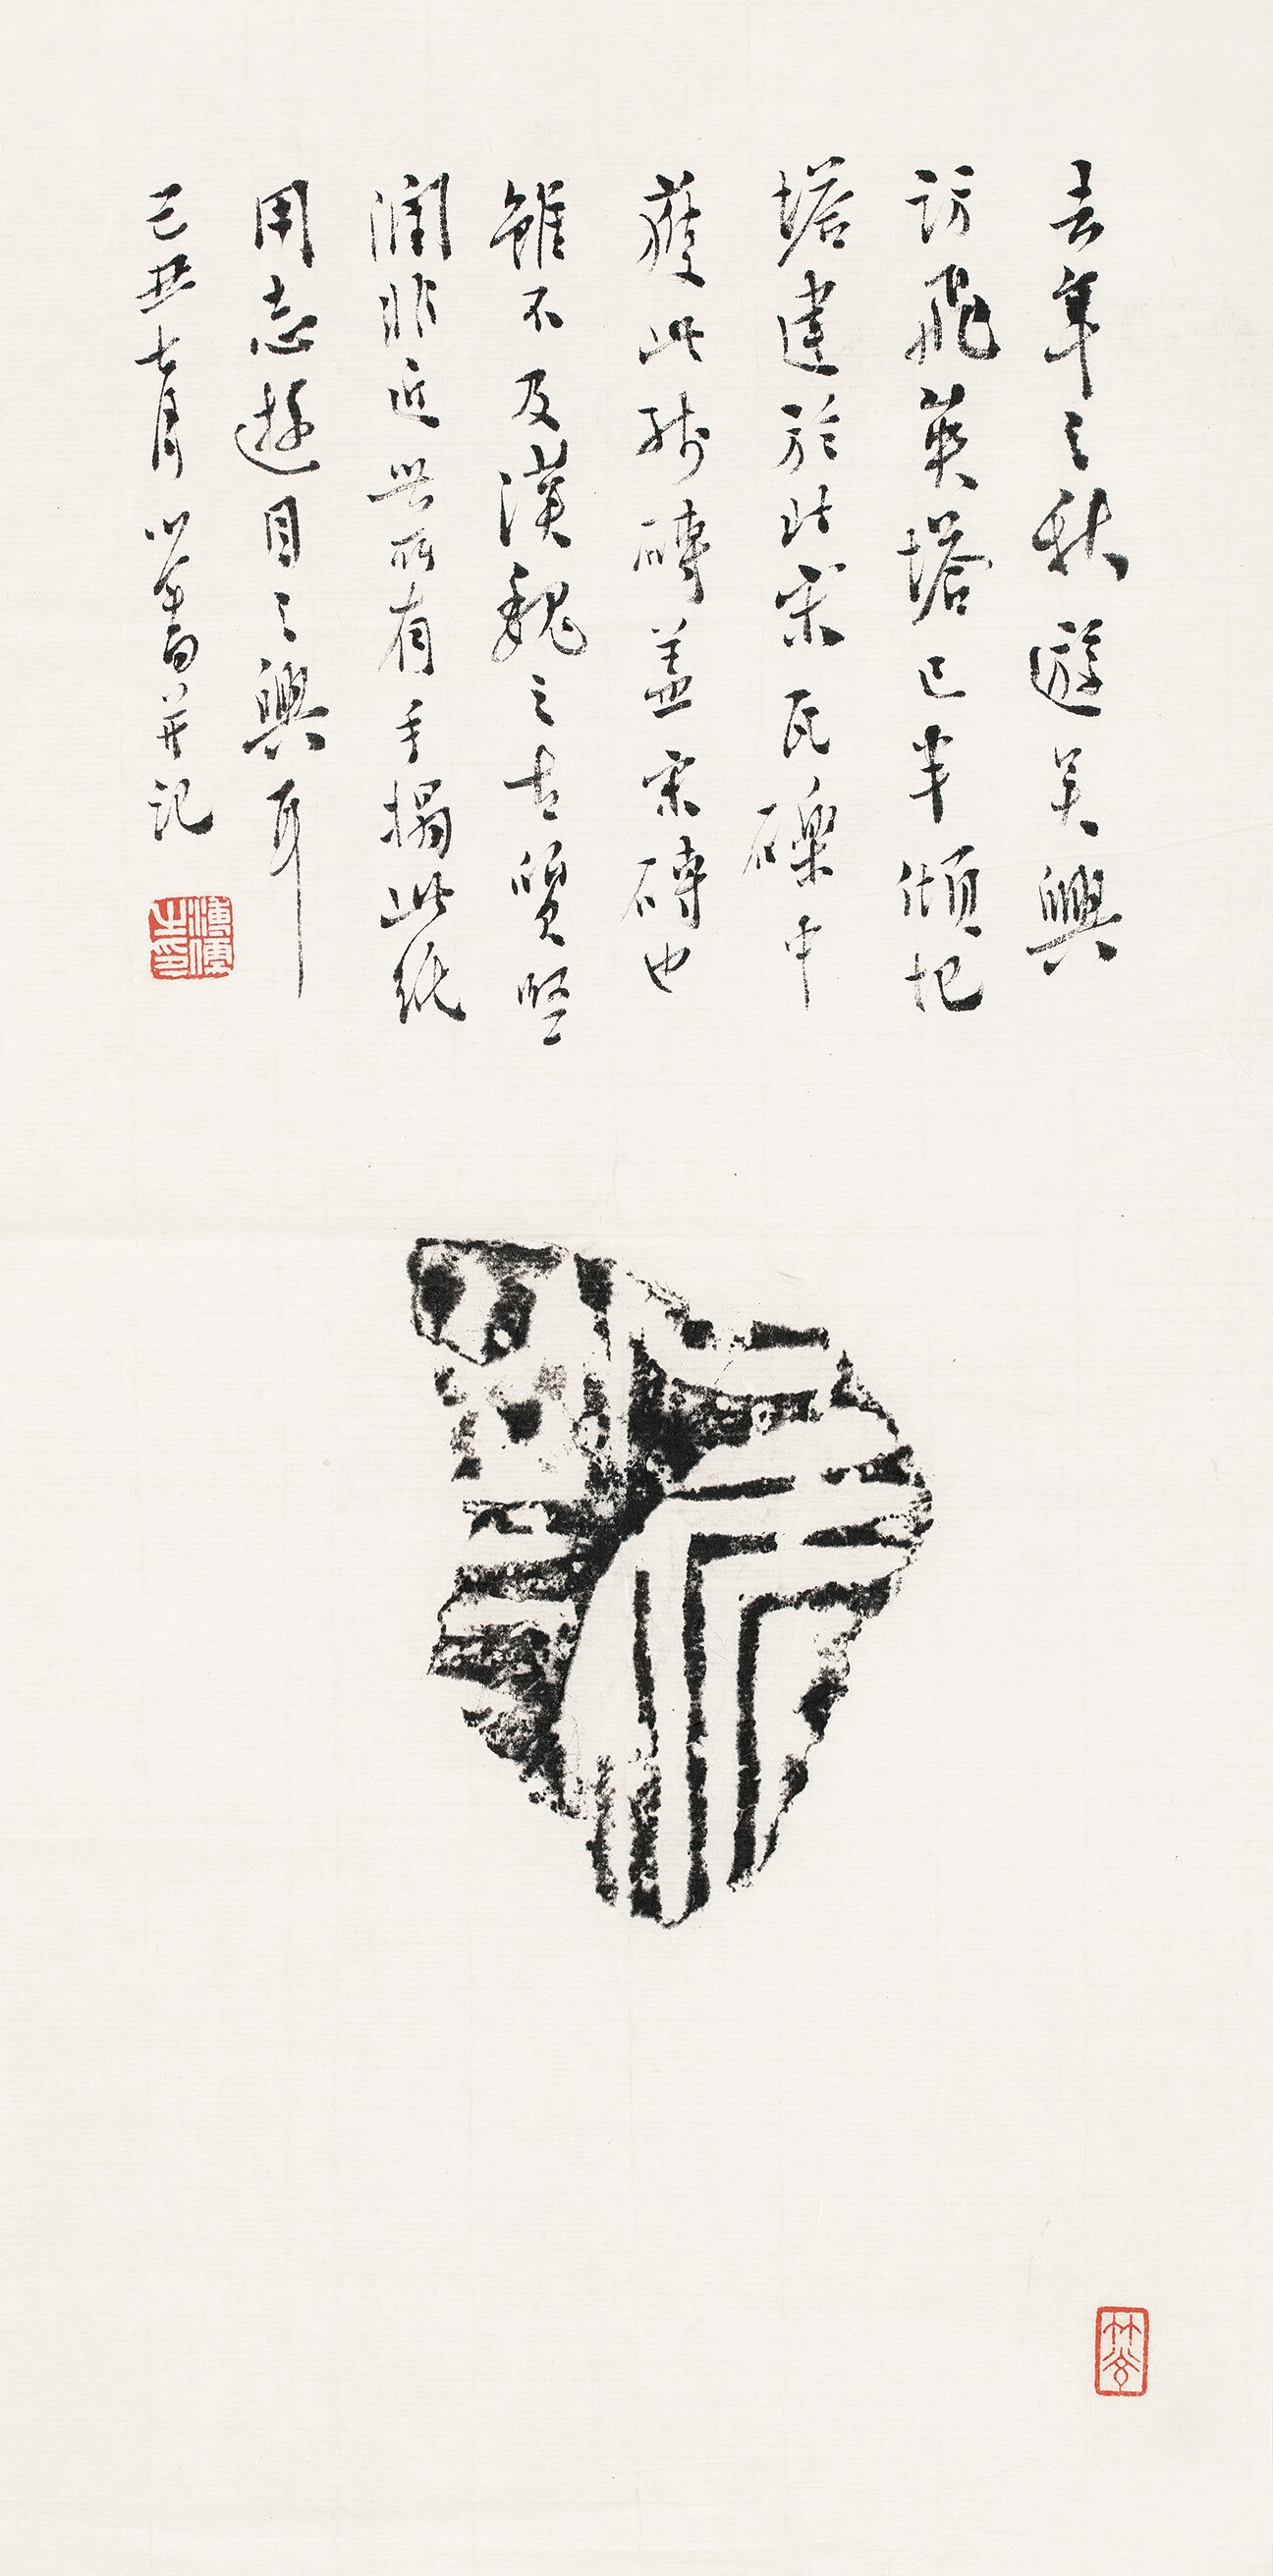 去年之秋遊吴興
訪飛英塔已半傾圯
塔建於北宋瓦礫中
獲此殘磚蓋宋磚也
雖不及漢魏之古質堅
潤非近世所有手搨此紙
用志遊目之興耳
己丑七月心畬并記
溥儒之印